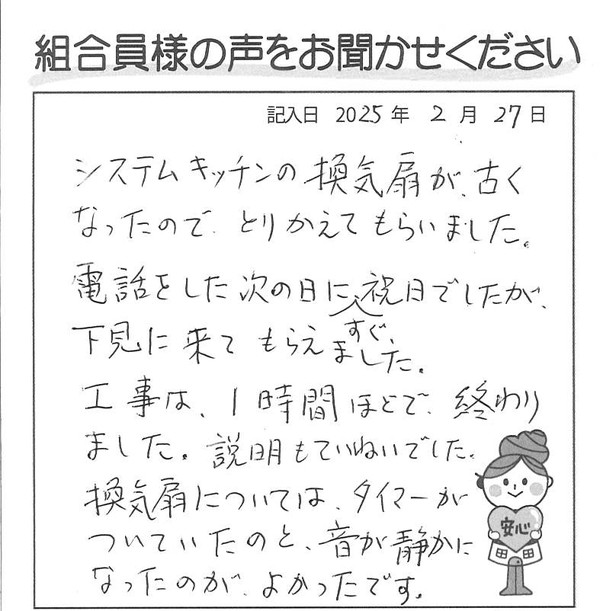 組合員様の声をお聞かせください
記入日 2025年 2月 27日
システムキッチンの換気扇が、古く
なったので、とりかえてもらいました。
電話をした次の日に、祝日でしたが、
すぐ、
下見に来てもらえました。
工事は、1時間ほどで、終わり
ました。説明もていねいでした。
換気扇については、タイマーが
ついていたのと、音が静かに
なったのが、よかったです。
安心